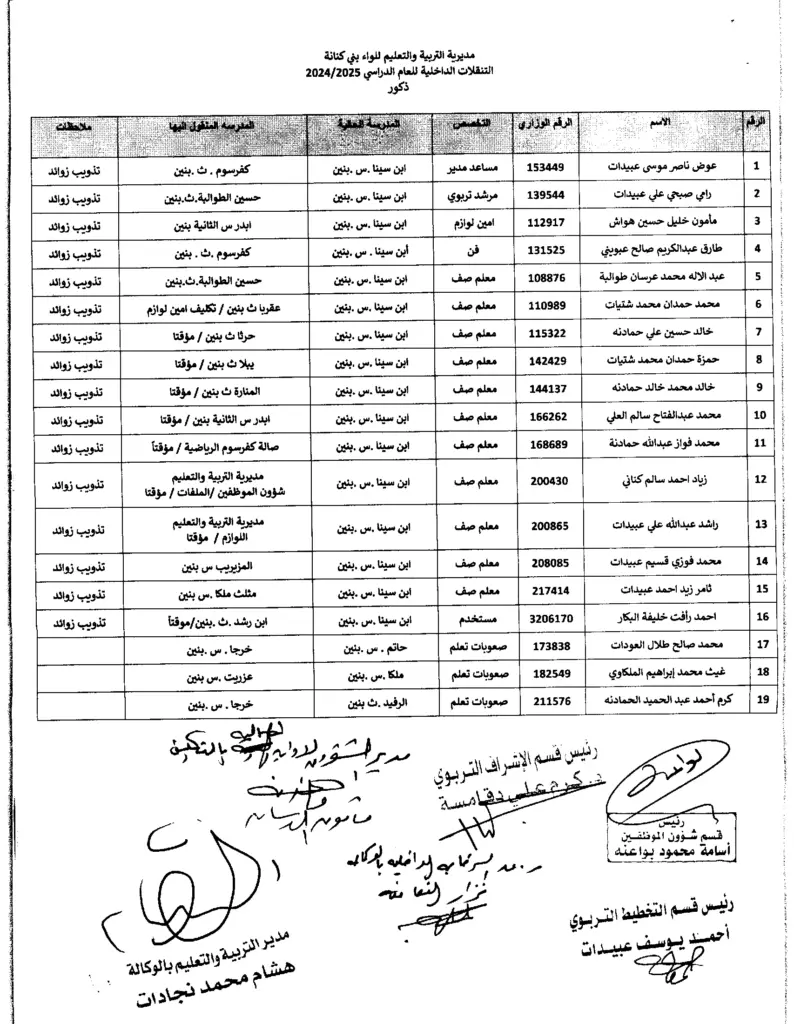 مديرية التربية والتعليم للواء بني كنانة
التنقلات الداخلية للعام الدراسي 2024/2025
ذكور
الرقم | الاسم | الرقم الوزاري | التخصص | المدرسة الحالية | المدرسه المنقول اليها | ملاحظات
1 | عوض ناصر موسى عبيدات | 153449 | مساعد مدير | ابن سينا .س .بنين | كفرسوم . ث .بنين | تذويب زوائد
2 | رامي صبحي علي عبيدات | 139544 | مرشد تربوي | ابن سينا .س .بنين | حسين الطوالبة.ث.بنين | تذويب زوائد
3 | مأمون خليل حسين هواش | 112917 | امين لوازم | ابن سينا .س .بنين | ابدر س الثانية بنين | تذويب زوائد
4 | طارق عبدالكريم صالح عبويني | 131525 | فن | أبن سينا . س .بنين | كفرسوم .ث . بنين | تذويب زوائد
5 | عبد الاله محمد عرسان طوالبة | 108876 | معلم صف | ابن سينا .س .بنين | حسين الطوالبة.ث.بنين | تذويب زوائد
6 | محمد حمدان محمد شتيات | 110989 | معلم صف | ابن سينا .س .بنين | عقربا ث بنين / تكليف امين لوازم | تذويب زوائد
7 | خالد حسين علي حمادنه | 115322 | معلم صف | ابن سينا .س .بنين | حرثا ث بنين / مؤقتا | تذويب زوائد
8 | حمزة حمدان محمد شتيات | 142429 | معلم صف | ابن سينا .س .بنين | يبلا ث بنين / مؤقتا | تذويب زوائد
9 | خالد محمد خالد حمادنه | 144137 | معلم صف | ابن سينا .س .بنين | المنارة ث بنين / مؤقتا | تذويب زوائد
10 | محمد عبدالفتاح سالم العلي | 166262 | معلم صف | ابن سينا .س .بنين | ابدر س الثانية بنين / مؤقتا | تذويب زوائد
11 | محمد فواز عبدالله حمادنة | 168689 | معلم صف | ابن سينا .س .بنين | صالة كفرسوم الرياضية / مؤقتاً | تذويب زوائد
12 | زياد احمد سالم كناني | 200430 | معلم صف | ابن سينا .س .بنين | مديرية التربية والتعليم
شؤون الموظفين /الملفات / مؤقتا | تذويب زوائد
13 | راشد عبدالله علي عبيدات | 200865 | معلم صف | ابن سينا .س .بنين | مديرية التربية والتعليم
اللوازم / مؤقتا | تذويب زوائد
14 | محمد فوزي قسيم عبيدات | 208085 | معلم صف | ابن سينا .س .بنين | المزيريب س بنين | تذويب زوائد
15 | ثامر زيد احمد عبيدات | 217414 | معلم صف | ابن سينا .س .بنين | مثلث ملكا .س بنين | تذويب زوائد
16 | احمد رأفت خليفة البكار | 3206170 | مستخدم | ابن سينا .س .بنين | ابن رشد .ث .بنين/موقتاً | تذويب زوائد
17 | محمد صالح طلال العودات | 173838 | صعوبات تعلم | حاتم . س .بنين | خرجا . س .بنين
18 | غيث محمد إبراهيم الملكاوي | 182549 | صعوبات تعلم | ملكا .س .بنين | عزريت .س بنين
19 | كرم أحمد عبد الحميد الحمادنه | 211576 | صعوبات تعلم | الرفيد .ث بنين | خرجا . س .بنين
رئيس
قسم شؤون الموظفين
أسامة محمود بواعنه
رئيس قسم الإشراف التربوي
د. كرم علي دقامسة
رئيس قسم التخطيط التربوي
أحمد يوسف عبيدات
مدير التربية والتعليم بالوكالة
هشام محمد نجادات